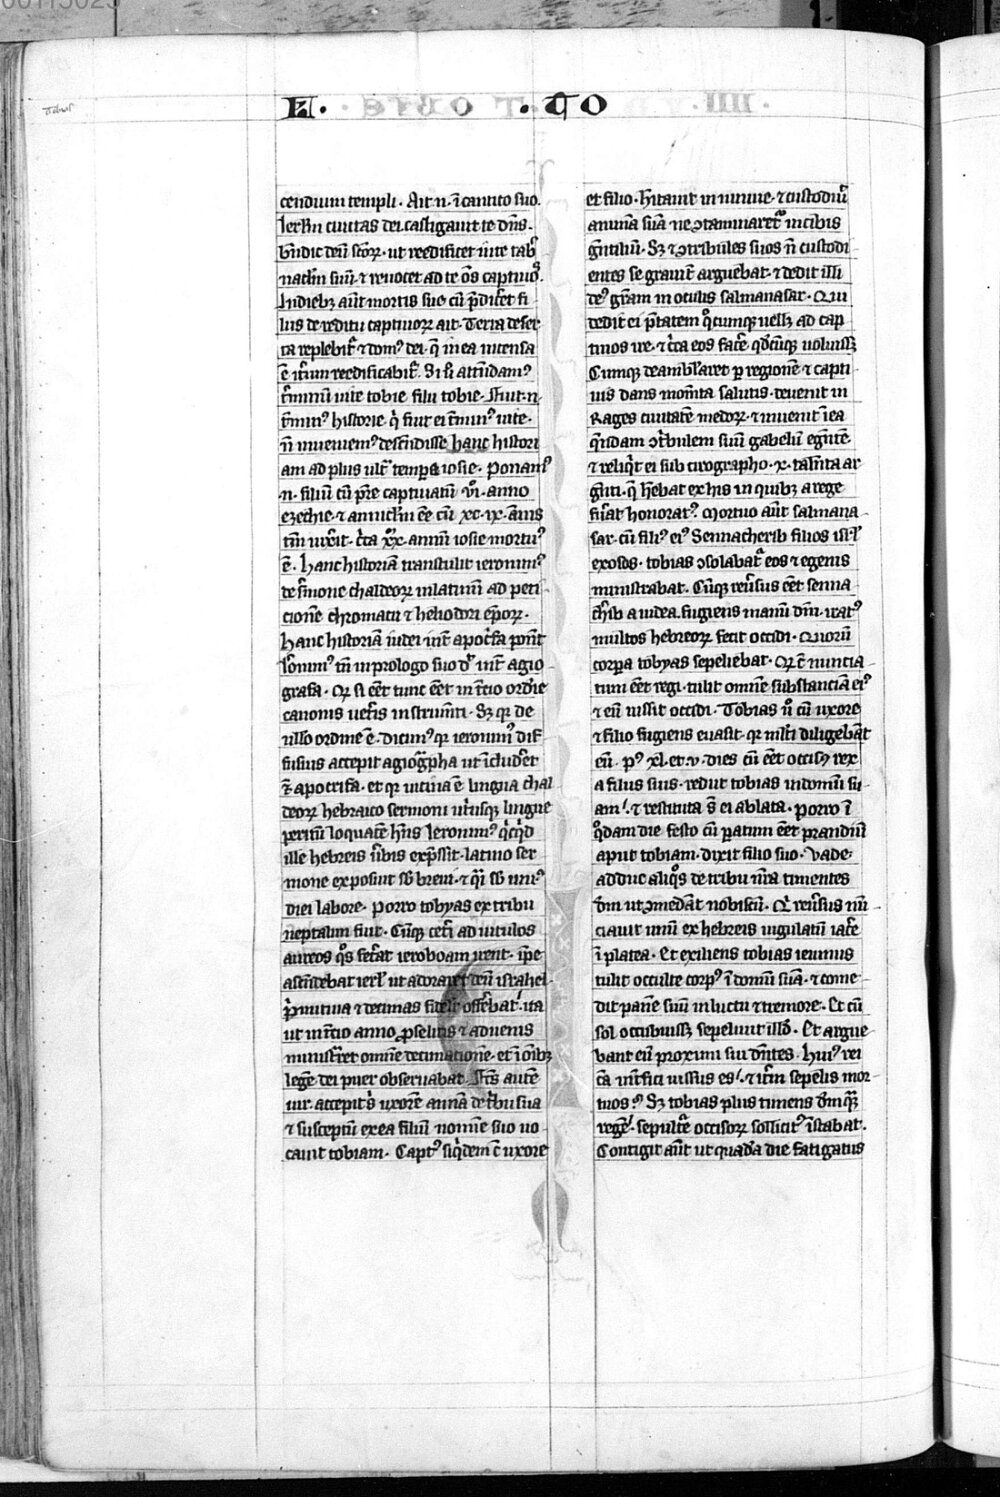 H. . TO
cendium templi. Ait .n. ī cantico suo.
Ierl̄m ciuitas dei castigauit te dn̄s.
bn̄dic deū sc̄oꝝ. ut reedificet in te tab̄
nacl̄m suū ⁊ reuocet ad te oēs captiuos.
In dieb; aūt mortis sue cū p̄diceret fi
liis de reditu captiuoꝝ ait. Terra deser
ta replebit᷑ ⁊ dom᷒ dei. q̄ in ea incensa
ē it̄um reedificabit᷑. Si s̄i attn̄dam᷒
t̄minū uite tobie filii tobie. Fiut .n.
t̄min᷒ historie q̄ fiut ei t̄min᷒ uite.
n̄ inueniem᷒ descn̄disse hanc histori
am ad plus ult᷑ tempa iosie. Ponam᷒
.n. filiū cū pr̄e captiuatū .vi. anno
ezechie. ⁊ annicl̄m ēe cū xc.ix. annis
tm̄ uixit. c̄ca .xx. annū iosie mortu᷒
ē. hanc historiā transtulit ieronim᷒
de s̄mone chaldeoꝝ in latinū ad peti
cionē chromacii ⁊ heliodori ep̄oꝝ.
hanc historiā iudei int᷑ apoc̄fa ponūt
Ieronim᷒ tn̄ in prologo suo d̄r int᷑ agio
grafa. Qꝛ si eēt tunc eēt in t̄cio ordīe
canonis uet̄is instrum̄ti. Sꝫ qꝛ de
ullo ordine ē. dicim᷒ qꝛ ieronim᷒ dif
fusius accepit agioḡpha ut īcluderet
⁊ apocrifa. et qꝛ uicina ē lingua chal
deoꝝ hebraico sermoni ut̄iusqꝫ lingue
peritū loquacē hn̄s Ieronim᷒ q̄cq̄d
ille hebreis ūbis exp̄ssit. latino ser
mone exposuit sb̄ breui. ⁊ q̄i sb̄ uni᷒
diei labore. Porro tobyas ex tribu
neptalim fuit. Cūqꝫ cet̄i ad uitulos
aureos q̄s fec̄at ieroboam irent. ip̄e
ascn̄debat ierl̄ ut adoraret deū israhel
p̄mitiua ⁊ decimas fidelit᷑ offerebat. ita
ut in t̄cio anno p̄selitis ⁊ aduenis
ministraret omnē decimationē. et ī oīb;
legē dei puer obseruabat. Fc̄s autē
uir. accepit s̄ uxorē annā de t̄bu sua
⁊ susceptū ex ea filiū nomine suo uo
cauit tobiam. Capt᷒ siq̄dem c̄ uxore
et filio. h̄itauit in niniue. ⁊ custodiuit
animā suā ne ꝯtaminaret᷑ in cibis
gn̄tiliū. Sꝫ ⁊ ꝯtribules suos n̄ custodi
entes se grauit᷑ arguebat. ⁊ dedit illi
de᷒ gr̄am in oculis salmanasar. Qui
dedit ei p̄tatem q̄cumqꝫ uellꝫ ad cap
tiuos ire. ⁊ c̄ca eos facē qd̄cūqꝫ uoluissꝫ
Cumqꝫ deambularet p̱ regionē ⁊ capti
uis dans monita salutis. deuenit in
Rages ciuitatē medoꝝ. ⁊ inuenit ī ea
q̄ndam ꝯt̄bulem suū gabelū egn̄tē
⁊ reliq̄t ei sub cirographo .x. taln̄ta ar
gn̄ti. q̄ h̄ebat ex his in quibꝫ a rege
fūat honorat᷒. Mortuo aūt salmana
sar. cū fili᷒ ei᷒ Sennacherib filios isrl̄
exosos. tobias ꝯsolabat᷑ eos ⁊ egenis
ministrabat. Cūqꝫ reūsus eēt senna
ch̄ib a iudea. fugiens manū dn̄i. irat᷒
multos hebreoꝝ fecit occidi. Quorū
corpa tobyas sepeliebat. Qꝛ c̄ nuncia
tum eēt regi. tulit omnē substanciā ei᷒
⁊ eū iussit occidi. Tobias ū cū uxore
⁊ filio fugiens euasit. qꝛ ml̄ti diligebāt
eū. p᷒ xl. et. v. dies cū eēt occisus rex
a filiis suis. rediit tobias in domū su
am. ⁊ restituta s̄ ei ablata. Porro ī
q̄dam die festo cū paratum eēt prandiū
aput tobiam. dixit filio suo. Vade.
adduc aliq̄s de tribu nr̄a timentes
dm̄ ut ꝯmedāt nobiscū. Q̄ reūsus nū
ciauit unū ex hebreis iugulatū iacē
ī platea. Et exiliens tobias ieiunus
tulit occulte corp᷒ ī domū suā. ⁊ come
dit panē suū in luctu ⁊ tremore. Et cū
sol occubuissꝫ sepeliuit illū. Et argue
bant eū proximi sui dn̄tes. hui᷒ rei
c̄a int̄fici iussus es. ⁊ it̄m sepelis mor
tuos. Sꝫ tobias plus timens dm̄ quā
regē. sepult᷑e occisoꝝ sollicit᷒ īstabat.
Contigit aūt ut quadā die fatigatus